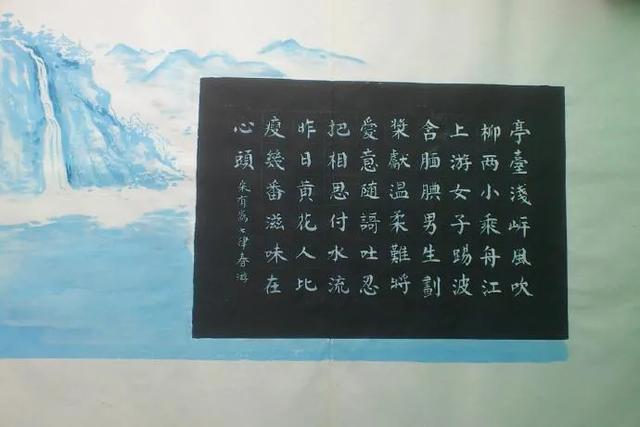 亭臺淺岍風吹
柳两小乘舟江
上游女子踢波
含腼腆男生劃
槳獻温柔難將
愛意随謌吐忍
把相思付水流
昨日黄花人比
瘦幾番滋味在
心頭 朱有為七律春游